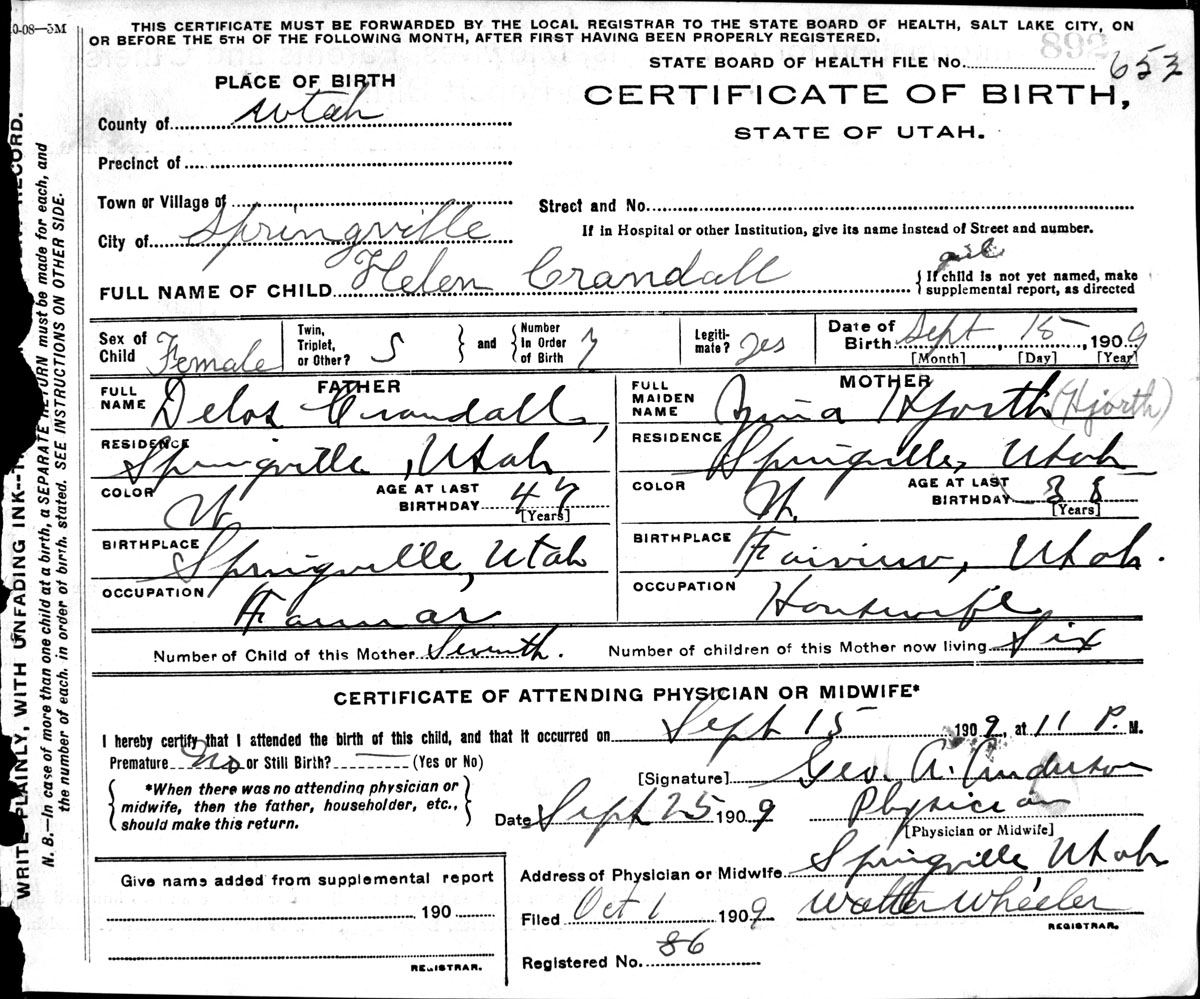 0-08—5M
THIS CERTIFICATE MUST BE FORWARDED BY THE LOCAL REGISTRAR TO THE STATE BOARD OF HEALTH, SALT LAKE CITY, ON
OR BEFORE THE 5TH OF THE FOLLOWING MONTH, AFTER FIRST HAVING BEEN PROPERLY REGISTERED.
STATE BOARD OF HEALTH FILE No. 653
PLACE OF BIRTH
CERTIFICATE OF BIRTH,
STATE OF UTAH.
County of Utah
Precinct of
Town or Village of
Street and No.
City of Springville
If in Hospital or other Institution, give its name instead of Street and number.
girl
FULL NAME OF CHILD Helen Crandall
If child is not yet named, make
supplemental report, as directed
Sex of Child Female
Twin, Triplet, or Other? S
and
Number In Order of Birth 7
Legiti-mate? Yes
Date of Birth Sept, 15, 1909
[Month] [Day] [Year]
FATHER
FULL NAME Delos Crandall,
RESIDENCE Springville, Utah
COLOR W
AGE AT LAST BIRTHDAY 47
[Years]
BIRTHPLACE Springville, Utah
OCCUPATION Farmar
MOTHER
FULL MAIDEN NAME Hjorth (Hjorth)
RESIDENCE Springville, Utah
COLOR W.
AGE AT LAST BIRTHDAY 38
[Years]
BIRTHPLACE Fairview, Utah.
OCCUPATION Housewife
Number of Child of this Mother Seventh. Number of children of this Mother now living Six
CERTIFICATE OF ATTENDING PHYSICIAN OR MIDWIFE*
I hereby certify that I attended the birth of this child, and that it occurred on Sept 15 1909, at 11 P. M.
Premature No or Still Birth? — (Yes or No)
*When there was no attending physician or
midwife, then the father, householder, etc.,
should make this return.
[Signature] Geo. A. Anderson
Date Sept 25 1909 Physician
[Physician or Midwife]
Give name added from supplemental report
190
REGISTRAR.
Address of Physician or Midwife Springville Utah
Filed Oct 1 1909 Walter Wheeler
REGISTRAR.
Registered No. 86
WRITE PLAINLY, WITH UNFADING INK-- RECORD.
N. B.—In case of more than one child at a birth, a SEPARATE RETURN must be made for each, and
the number of each, in order of birth, stated. SEE INSTRUCTIONS ON OTHER SIDE.